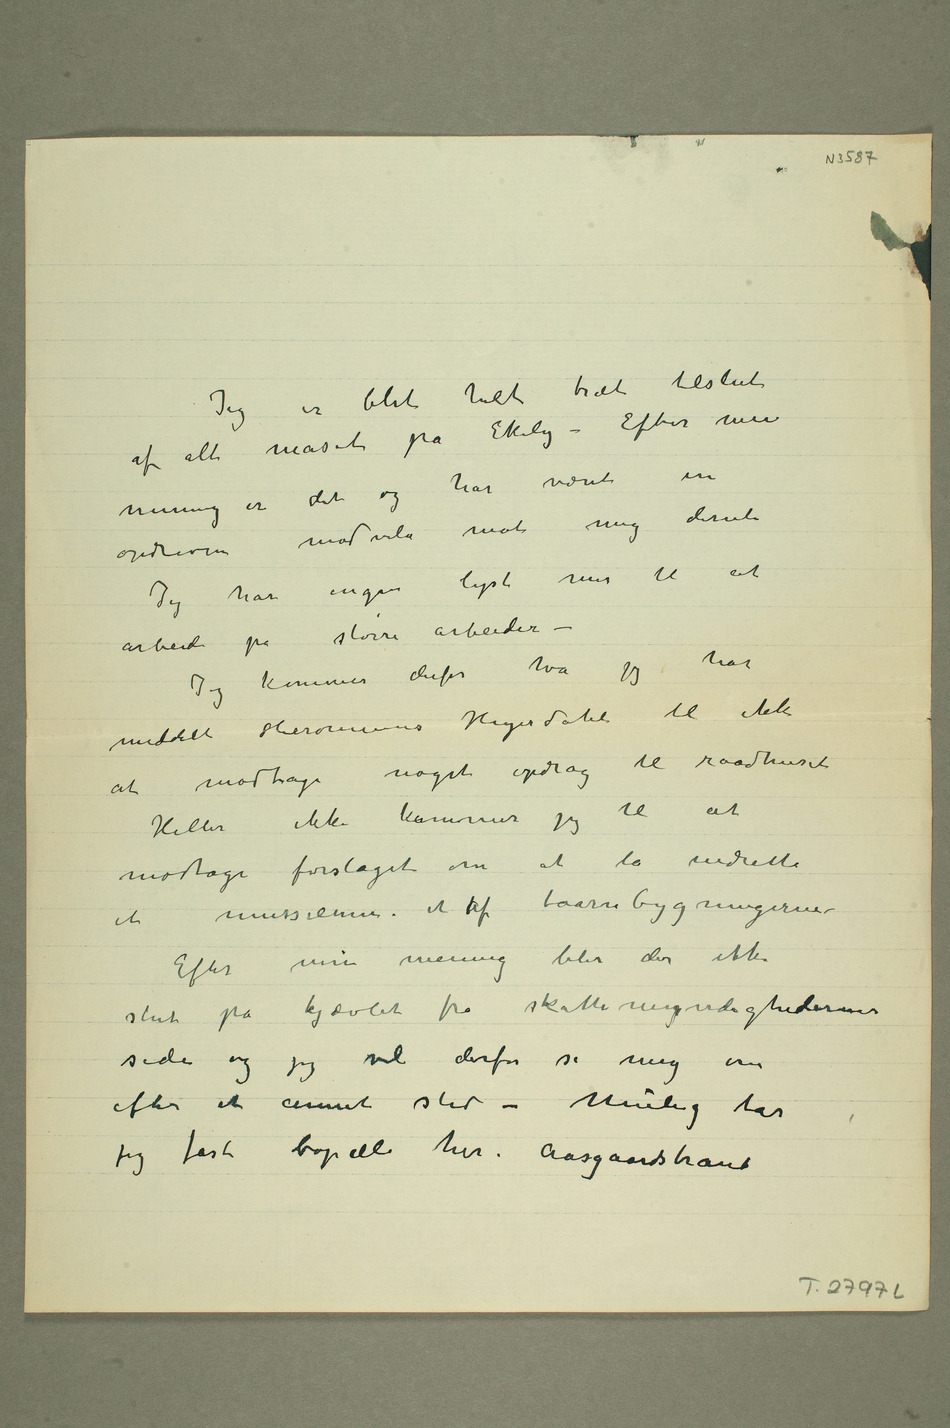 N3587
Jeg er blet helt træt tilslut
af alt maset på Ekely – Efter min
mening er det og har været en
opdreven modvilie mot mig dernede
Jeg har ingen lyst mer til at
arbeide på større arbeider –
Jeg kommer derfor hva jeg har
meddelt Hieronimus Heyerdahl til ikke
at modtage noget opdrag til raadhuset
Heller ikke kommer jeg til at
modtage forslaget om at la indrette
et musseum i et af taarnbygningerne
Efter min mening blir der ikke
slut på kjævlet fra skattemyndighedernes
side og jeg vil derfor se mig om
efter et annet sted – Mulig tar
jeg fast bopæl her i Aasgaardstrand
T. 2797L